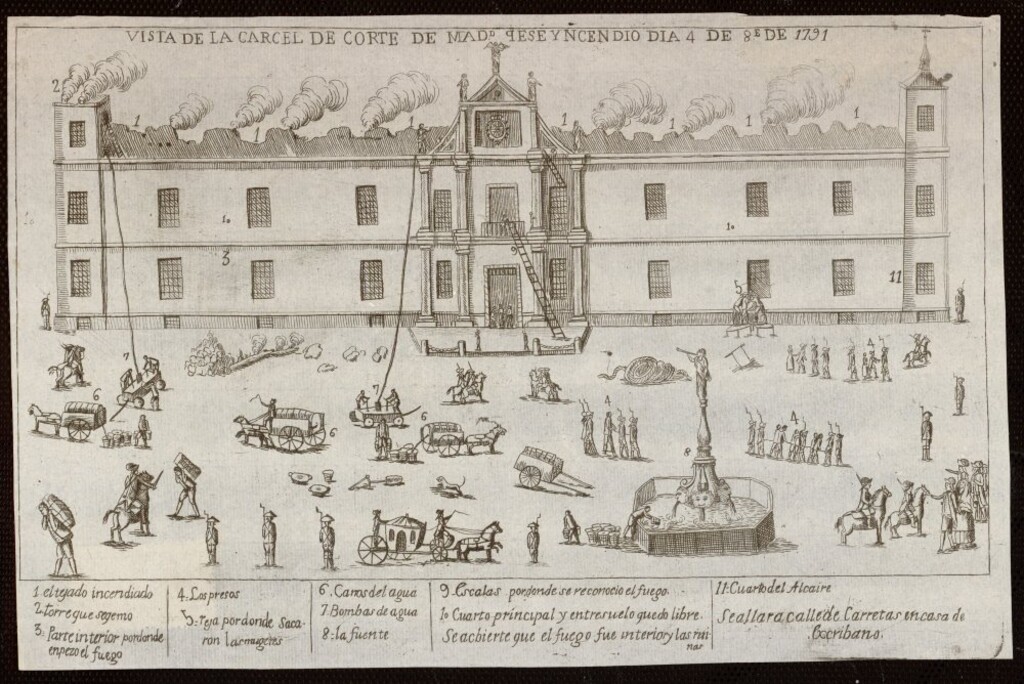 VISTA DE LA CARCEL DE CORTE DE MADᴰ. qESE YNCENDIO DIA 4 DE 8ᴱ DE 1791
2
1
1
1
1
1
1
1
1o
1o
3
9
11
5
7
4
6
7
6
6
4
4
8
1 el tejado incendiado
2 torre que segemo
3. Parte interior pordonde
enpezo el fuego
4. Los presos
5. reja por donde Saca-
ron las mugeres
6. Caros del agua
7. Bombas de agua
8. la fuente
9. Escalas pordonde se reconocio el fuego.
1o Cuarto principal y entresuelo quedo libre.
Se achierte que el fuego fue interior y las rui
nas
11. Cuarto del Alcaire
Se allara calle de Carretas en casa de
Escribano.